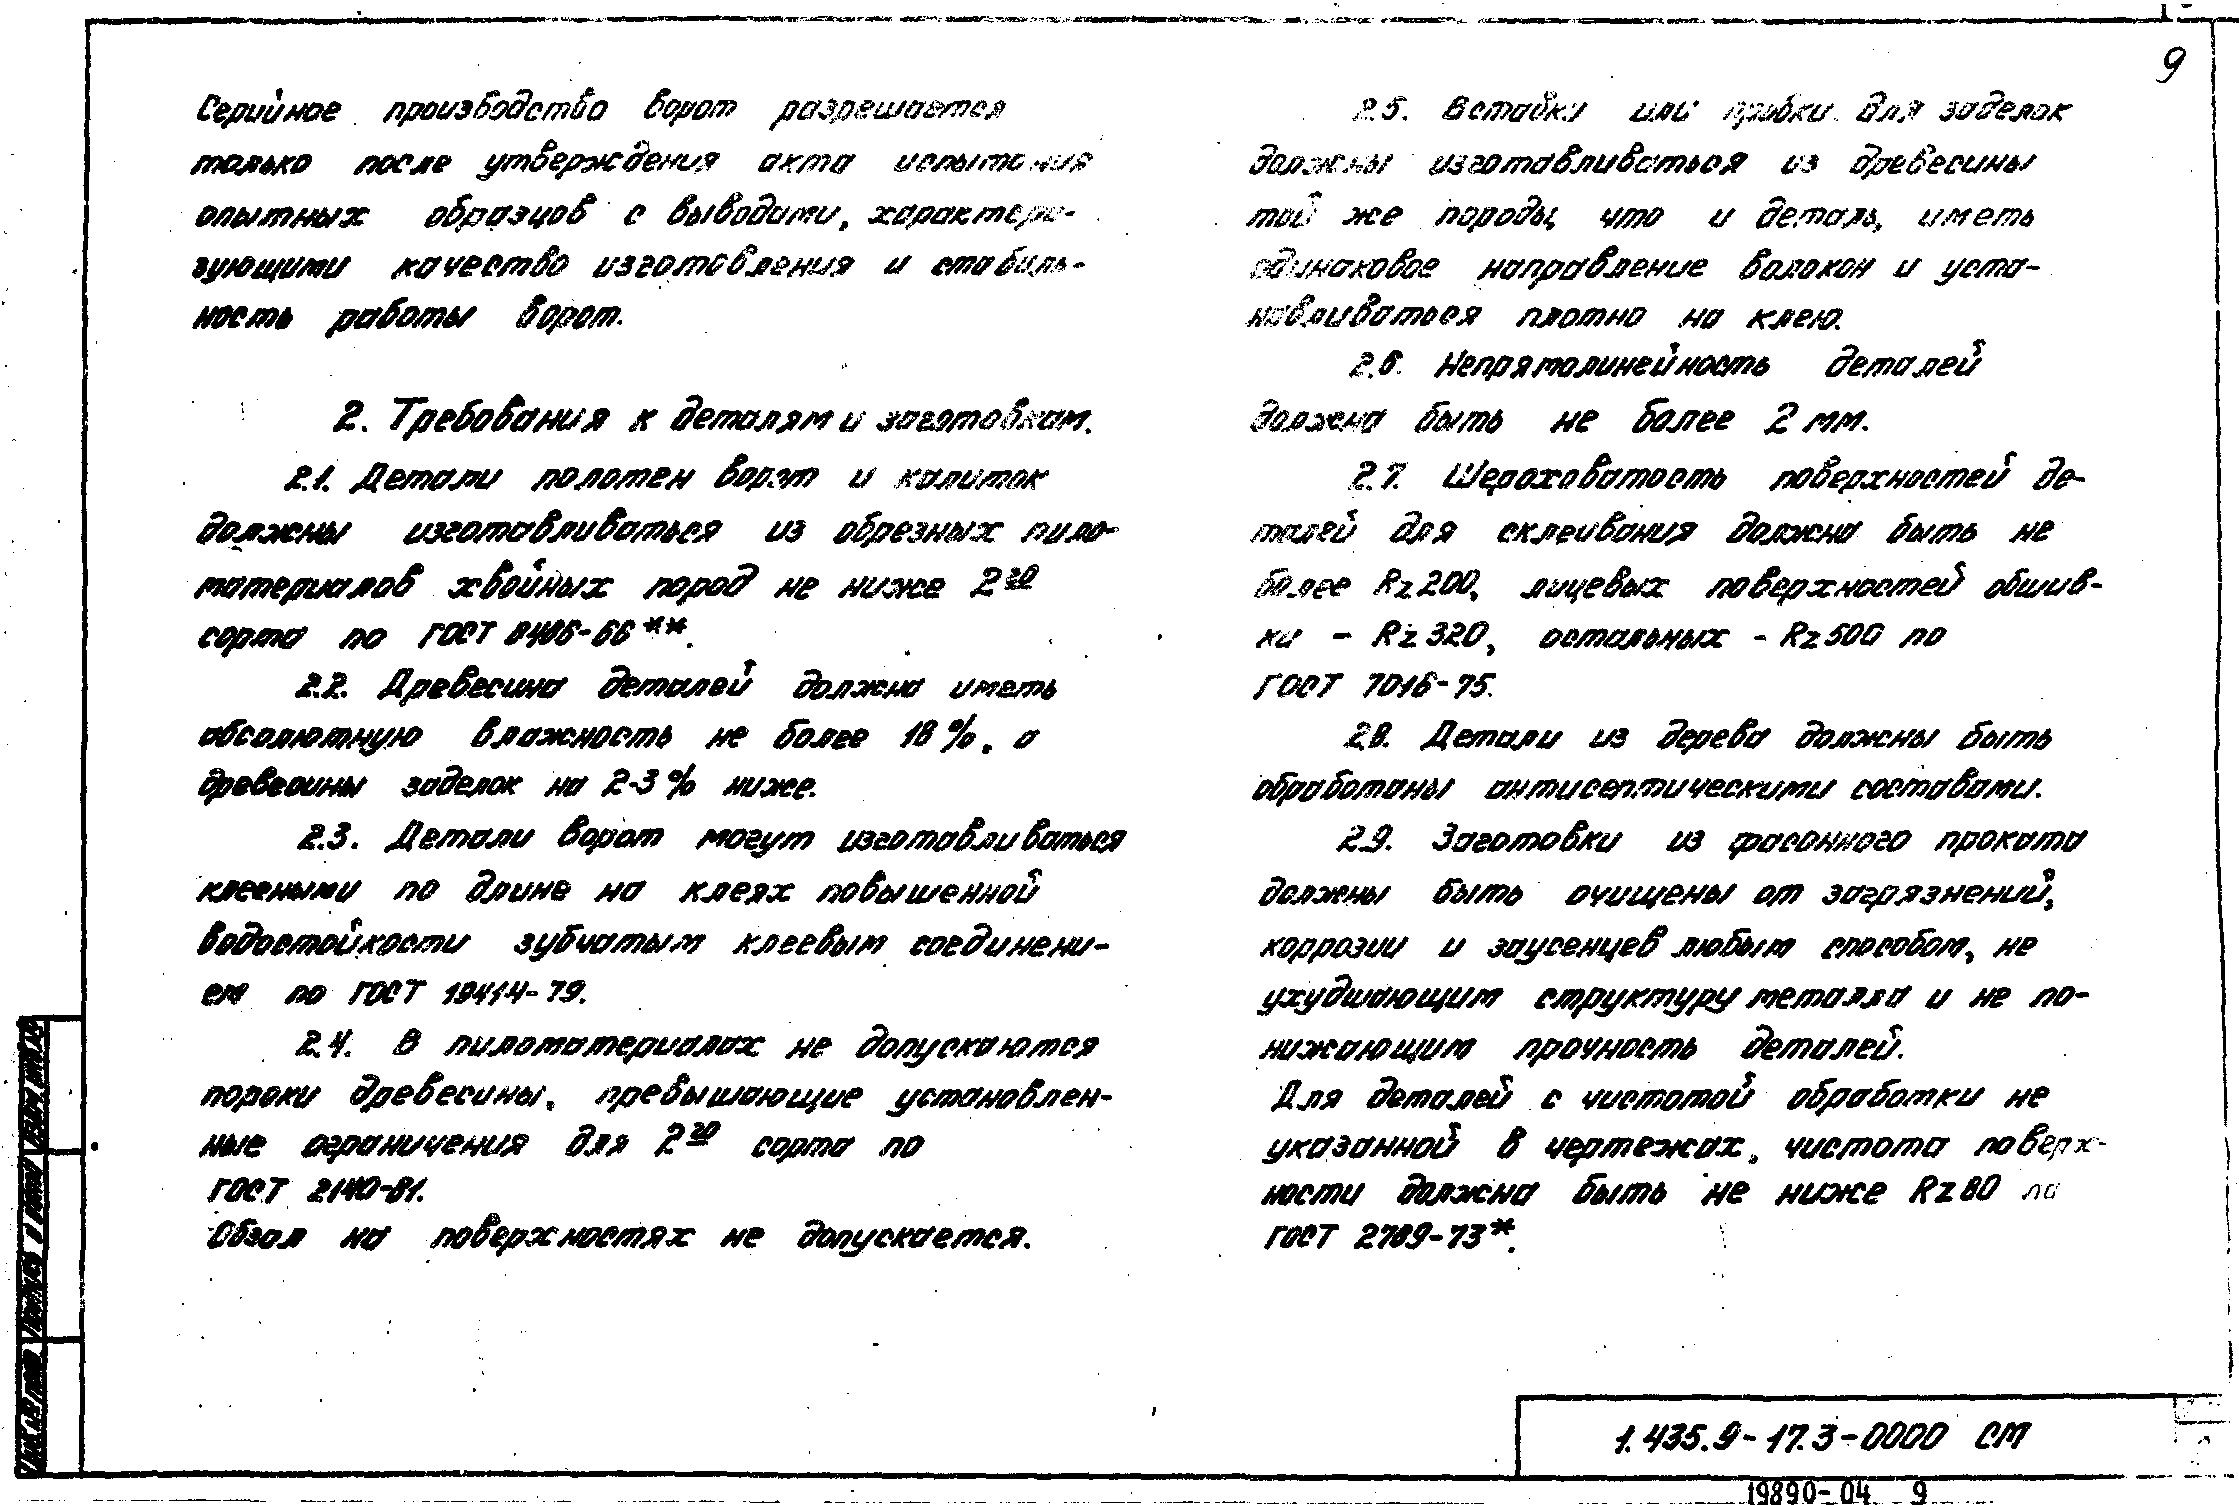 9
Серийное производство ворот разрешается
только после утверждения акта испытания
опытных образцов с выводами, характери-
зующими качество изготовления и стабиль-
ность работы ворот.
2. Требования к деталям и заготовкам.
2.1. Детали полотен ворот и калиток
должны изготавливаться из обрезных пило-
материалов хвойных пород не ниже 2го
сорта по ГОСТ 8486-66**.
2.2. Древесина деталей должна иметь
абсолютную влажность не более 18%, а
древесины заделок на 2-3% ниже.
2.3. Детали ворот могут изготавливаться
клееными по длине на клеях повышенной
водостойкости зубчатым клеевым соединени-
ем по ГОСТ 19414-79.
2.4. В пиломатериалах не допускаются
пороки древесины, превышающие установлен-
ные ограничения для 2го сорта по
ГОСТ 2140-81.
Обзол на поверхностях не допускается.
2.5. Вставки или пробки для заделок
должны изготавливаться из древесины
той же породы, что и деталь, иметь
одинаковое направление волокон и уста-
навливаться плотно на клею.
2.6. Непрямолинейность деталей
должна быть не более 2 мм.
2.7. Шероховатость поверхностей де-
талей для склеивания должна быть не
более Rz200, лицевых поверхностей обшив-
ки - Rz320, остальных - Rz500 по
ГОСТ 7016-75.
2.8. Детали из дерева должны быть
обработаны антисептическими составами.
2.9. Заготовки из фасонного проката
должны быть очищены от загрязнений,
коррозии и заусенцев любым способом, не
ухудшающим структуру металла и не по-
нижающим прочность деталей.
Для деталей с чистотой обработки не
указанной в чертежах, чистота поверх-
ности должна быть не ниже Rz80 по
ГОСТ 2789-73*.
1.435.9-17.3-0000 СМ
19890-04 9